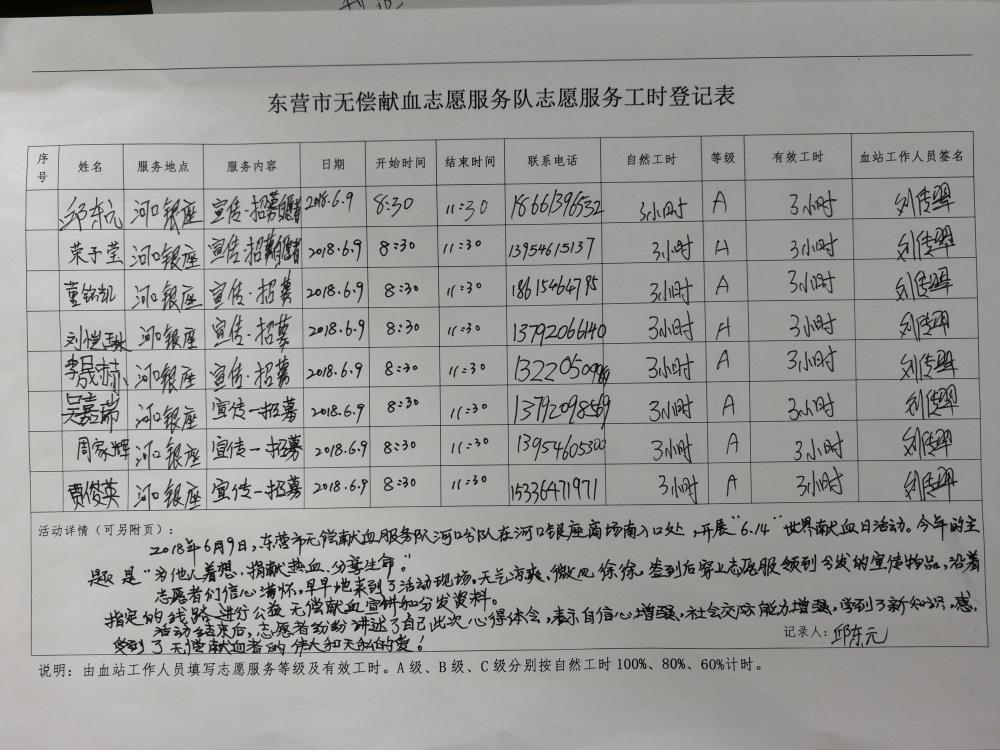 东营市无偿献血志愿服务队志愿服务工时登记表
序号 姓名 服务地点 服务内容 日期 开始时间 结束时间 联系电话 自然工时 等级 有效工时 血站工作人员签名
邱东元 河口银座 宣传·招募 2018.6.9 8:30 11:30 18661396532 3小时 A 3小时
荣子莹 河口银座 宣传·招募 2018.6.9 8:30 11:30 13954615137 3小时 A 3小时
董铭凯 河口银座 宣传·招募 2018.6.9 8:30 11:30 18615464795 3小时 A 3小时
河口银座 宣传·招募 2018.6.9 8:30 11:30 13792066140 3小时 A 3小时
河口银座 宣传·招募 2018.6.9 8:30 11:30 3小时 A 3小时
吴嘉瑞 河口银座 宣传一招募 2018.6.9 8:30 11:30 13792098569 3小时 A 3小时
周家辉 河口银座 宣传一招募 2018.6.9 8:30 11:30 13954605300 3小时 A 3小时
贾俊英 河口银座 宣传一招募 2018.6.9 8:30 11:30 15336471971 3小时 A 3小时
活动详情（可另附页）：
2018年6月9日，东营市无偿献血服务队河口分队在河口银座商场南入口处，开展“6.14”世界献血日活动。今年的主
题是“为他人着想.捐献热血.分享生命。”
志愿者们信心满怀，早早地来到了活动现场。天气凉爽、微风徐徐，签到后穿上志愿服领到分发的宣传物品，沿着
指定的线路进行公益无偿献血宣讲和分发资料。
活动结束后，志愿者纷纷讲述了自己此次心得体会，表示自信心增强，社会交际能力增强，学到了新知识，感
受到了无偿献血者的伟大和无私的爱！
记录人：邱东元
说明：由血站工作人员填写志愿服务等级及有效工时。A级、B级、C级分别按自然工时100%、80%、60%计时。